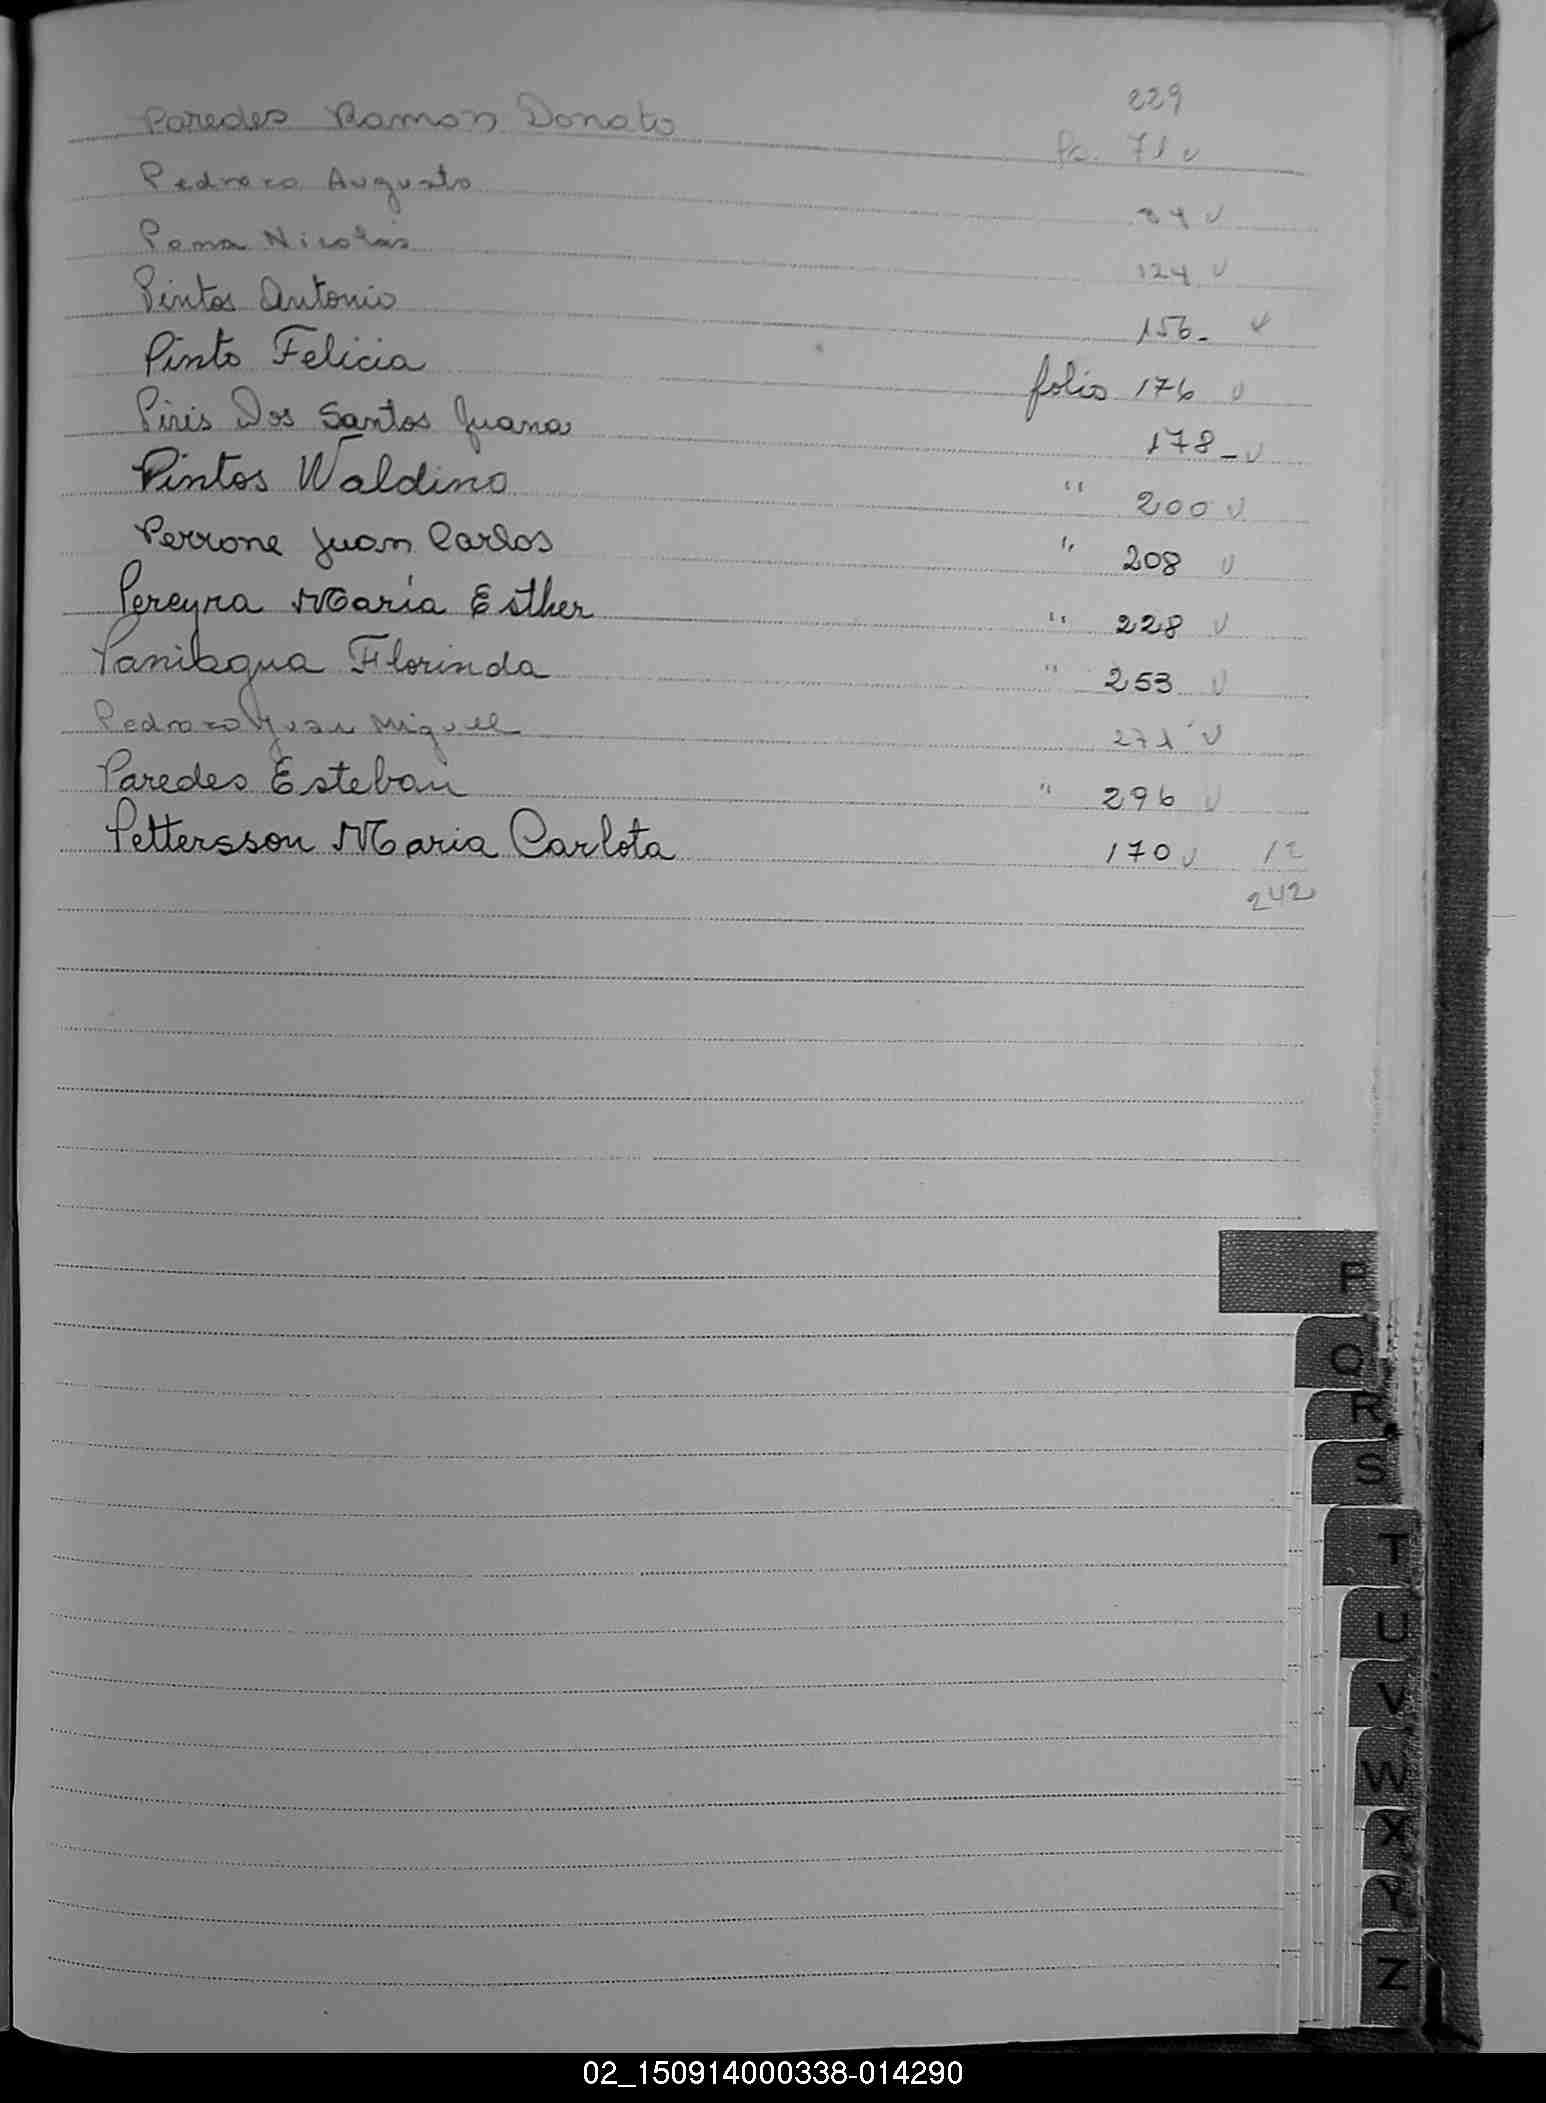 229
Paredes Ramón Donato Fo. 71 v
Pedrozo Augusto v
Pena Nicolás 124 v
Pintos Antonio 156- v
Pinto Felicia folio 176 v
Piris Dos Santos Juana 178- v
Pintos Waldino " 200 v
Perrone Juan Carlos " 208 v
Pereyra María Esther " 228 v
Paniagua Florinda " 253 v
Pedrozo Juan Miguel 271 v
Paredes Esteban " 296 v
Pettersson Maria Carlota 170 v 12
242
P
Q
R
S
T
U
V
W
X
Y
Z
02_150914000338-014290